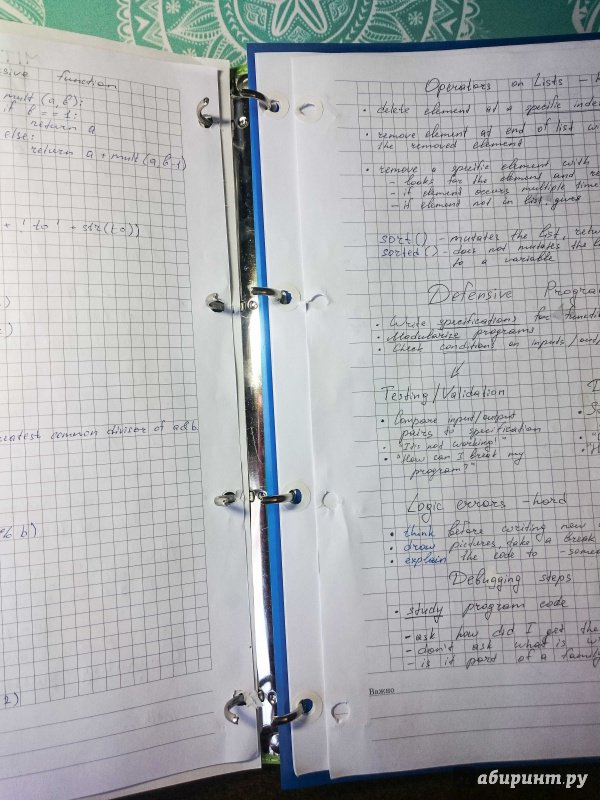 sive function
mult (a, b):
if b == 1:
return a
else:
return a + mult(a, b-1)
+ 'to' + str(to))
eatest common divisor of a&b.
% b)
2)
Operators on Lists -
• delete element at a specific inde
• remove element at end of list w
the removed element
• remove a specific element with
- looks for the element and re
- if element occurs multiple time
- if element not in list, gives
sort() - mutates the list, retu
sorted() - does not mutates the li
to a variable
Defensive Progra
• Write specifications for functio
• Modularize programs
• Check conditions on inputs/out
Testing/Validation
• Compare input/output
pairs to specification
• "It's not working!"
• "How can I break my
program?"
Logic errors - hard
• think before writing new
• draw pictures, take a break
• explain the code to - someo
Debugging steps
• study program code
- ask how did I get the
- don't ask what is w
- is it part of a family
Важно
абиринт.ру